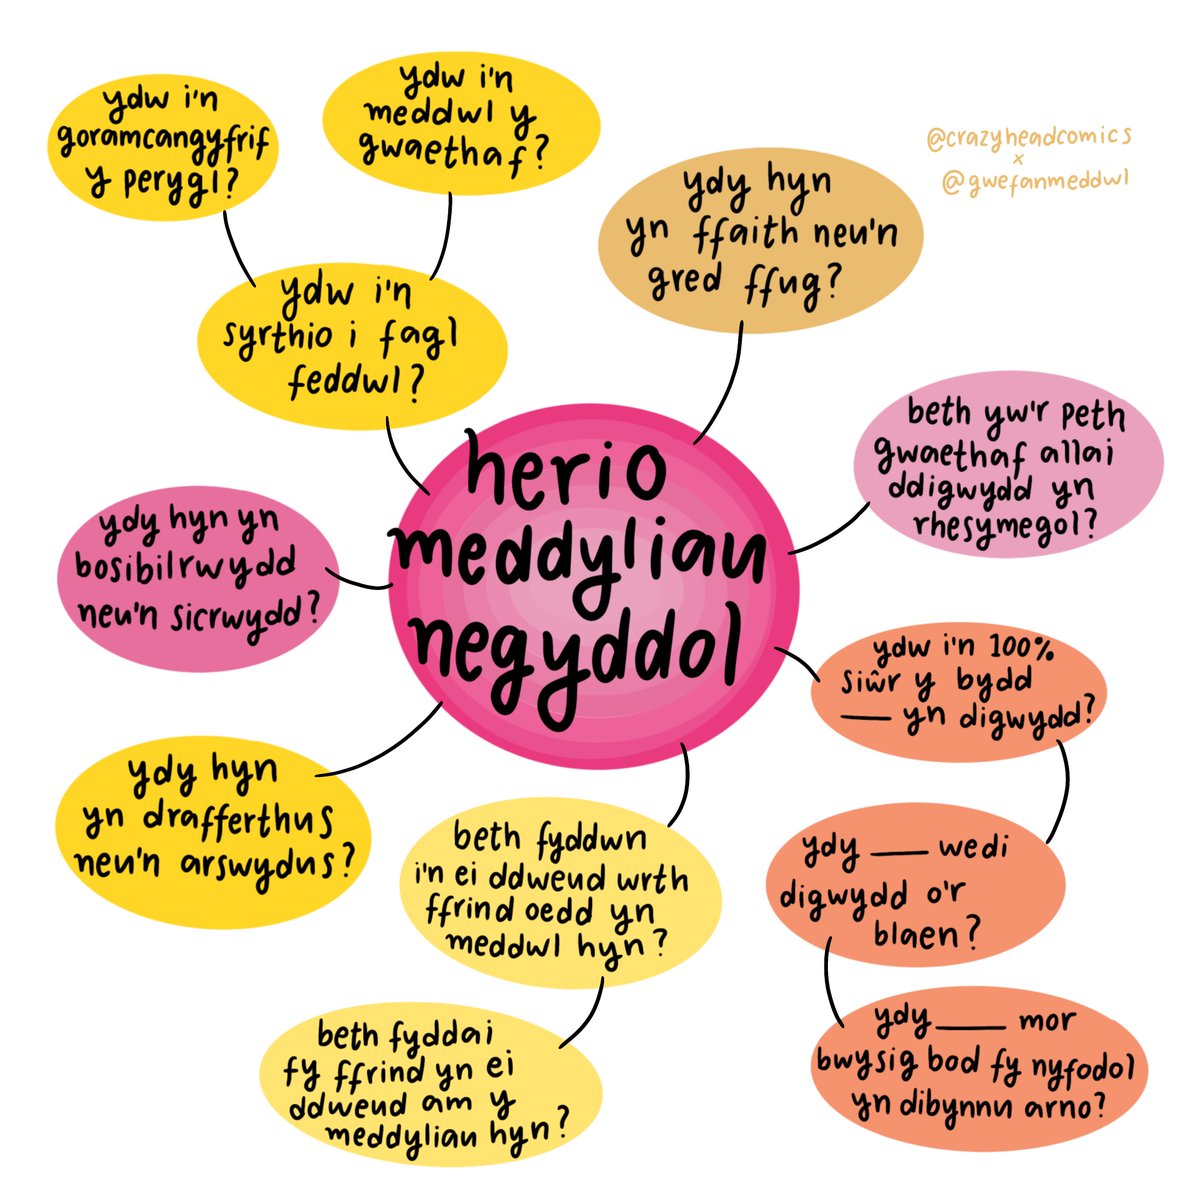 ydw i'n
goramcangyfrif
y perygl?
ydw i'n
meddwl y
gwaethaf?
@crazyheadcomics
x
@gwefanmeddwl
ydy hyn
yn ffaith neu'n
gred ffug?
ydw i'n
syrthio i fagl
feddwl?
beth yw'r peth
gwaethaf allai
ddigwydd yn
rhesymegol?
herio
meddyliau
negyddol
ydy hyn yn
bosibilrwydd
neu'n sicrwydd?
ydw i'n 100%
siŵr y bydd
___ yn digwydd?
ydy hyn
yn drafferthus
neu'n arswydus?
beth fyddwn
i'n ei ddweud wrth
ffrind oedd yn
meddwl hyn?
ydy ___ wedi
digwydd o'r
blaen?
beth fyddai
fy ffrind yn ei
ddweud am y
meddyliau hyn?
ydy ___ mor
bwysig bod fy nyfodol
yn dibynnu arno?